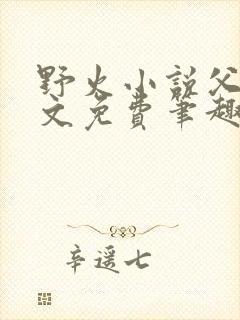 野火小说父
文免费笔趣
辛遥七